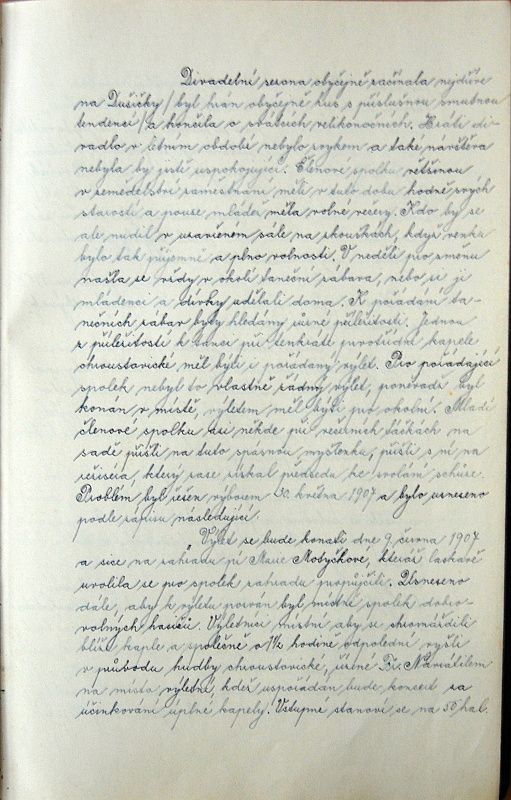 Divadelní sezona obyčejně začínala nejdříve
na Dušičky /byl hrán obyčejně kus s příslušnou smutnou
tendencí/ a končila o svátcích velikonočních. Hráti di-
vadlo v letním období nebylo zvykem a také návštěva
nebyla by jistě uspokojující. Členové spolku většinou
v zemědelství zaměstnáni měli v tuto dobu hodně svých
starostí a pouze mládež měla volné večery. Kdo by se
ale nudil v uzavřeném sále na zkouškách, když venku
bylo tak příjemně a plno volnosti. V neděli pro změnu
našla se vždy v okolí taneční zábava, nebo si ji
mládenci a dívky udělali doma. K pořádání ta-
nečních zábav byly hledány různé příležitosti. Jednou
z příležitostí k tanci při tenkráte prvotřídní kapele
chroustovické měl býti i pořádaný výlet. Pro pořádající
spolek nebyl to vlastně žádný výlet, poněvadž byl
konán v místě, výletem měl býti pro okolní. Mladí
členové spolku asi někde při večerních táčkách na
sadě přišli na tuto spásnou myšlenku, přišli s ní na
režiséra, který zase získal předsedu ke svolání schůze.
Problém byl řešen výborem 30. května 1907 a bylo usneseno
podle zápisu následující.
Výlet se bude konati dne 9. června 1907
a sice na zahradu pí Marie Motyčkové, kteráž laskavě
uvolila se pro spolek zahradu propůjčiti. Usneseno
dále, aby k výletu pozván byl místní spolek dobro-
volných hasičů. Výletníci místní aby se shromáždili
blíže kaple a společně o 1½ hodině odpolední vyšli
v průvodu hudby chroustovické, řízené Fr. Navrátilem
na místo výletní, kdež uspořádán bude koncert za
účinkování úplné kapely. Vstupné stanoví se na 50 hal.